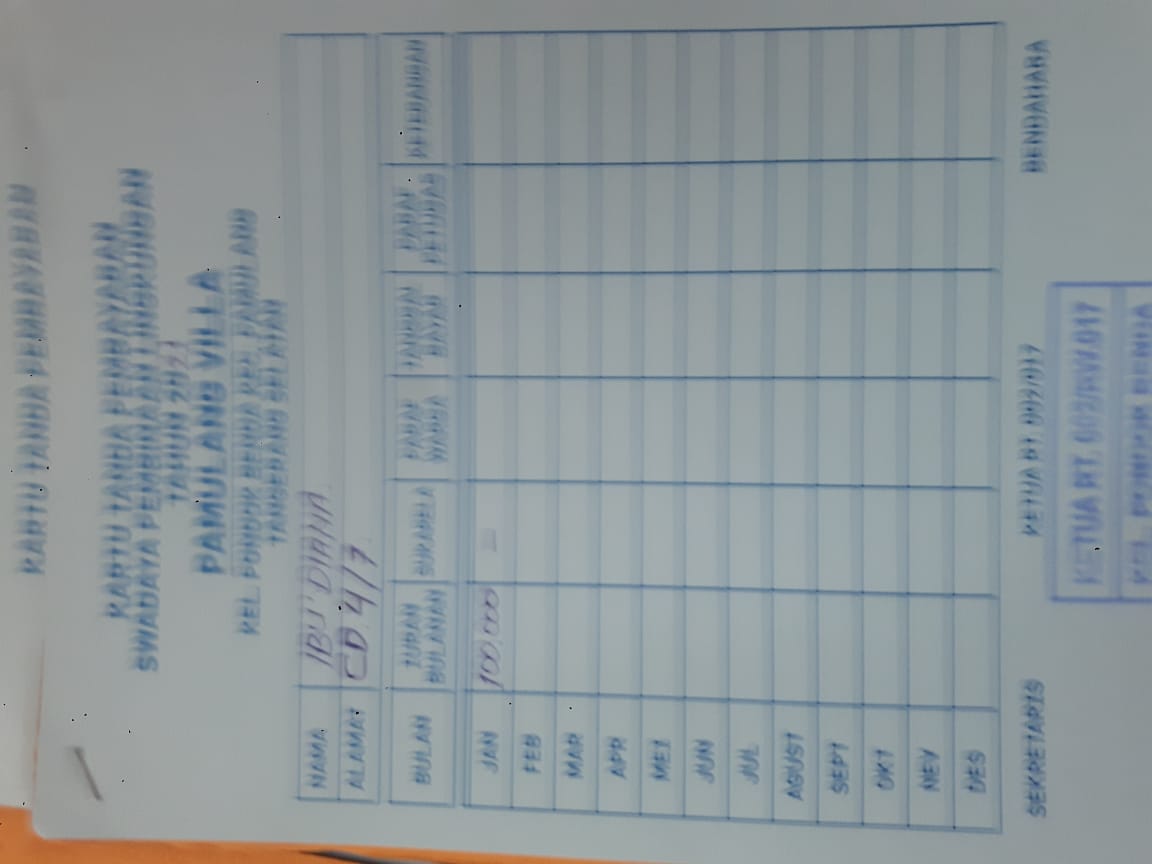 KARTU TANDA PEMBAYARAN
KARTU TANDA PEMBAYARAN
SWADAYA PEMBINAAN LINGKUNGAN
TAHUN 2021
PAMULANG VILLA
KEL. PONDOK BENDA KEC. PAMULANG
TANGERANG SELATAN
NAMA IBU DIANA
ALAMAT CD 4/7
BULAN IURAN BULANAN SUKARELA PARAF WARGA TANGGAL BAYAR PARAF PETUGAS KETERANGAN
JAN 100.000 =
FEB
MAR
APR
MEI
JUN
JUL
AGUST
SEPT
OKT
NEV
DES
SEKRETARIS KETUA RT. 002/017 BENDAHARA
KETUA RT. 002/RW.017
KEL. PONDOK BENDA